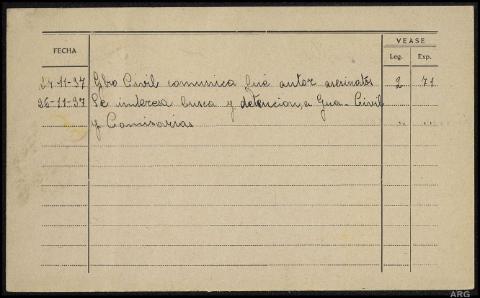 VEASE
FECHA Leg. Exp.
24-11-37 Gbro Civil comunica fué autor asesinatos 2 71
26-11-37 Se interesa busca y detencion, a Gua. Civil
y Comisarias " "
ARG